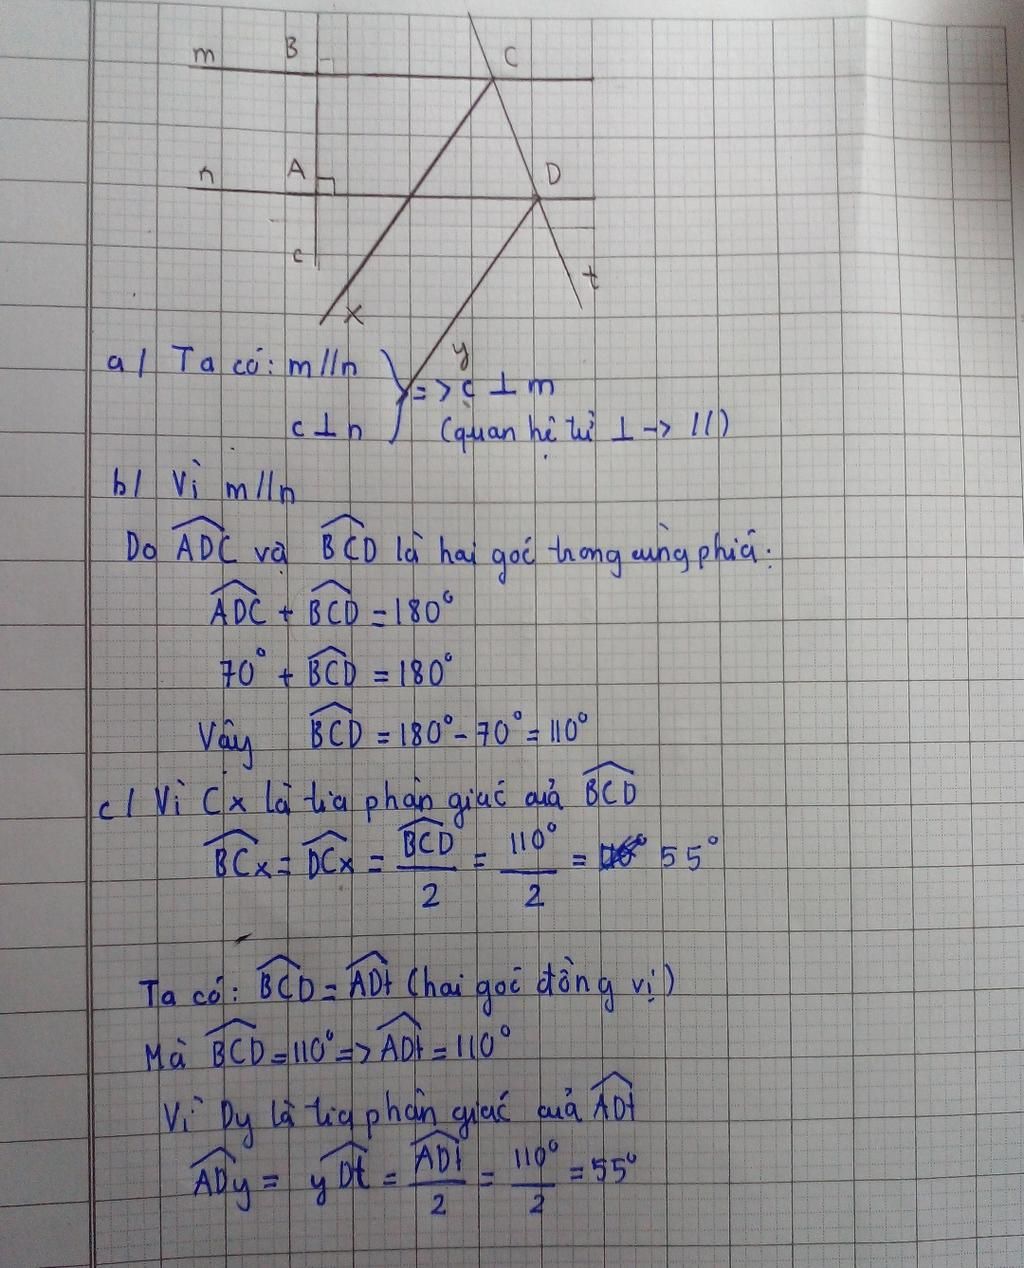 m B C
n A D
c
x
t
y
a/ Ta có: m//n
=> c ⊥ m
c⊥n (quan hệ từ ⊥ -> //)
b/ Vì m//n
Do ADC và BCD là hai góc trong cùng phía:
ADC + BCD = 180°
70° + BCD = 180°
Vậy BCD = 180° - 70° = 110°
c/ Vì Cx là tia phân giác của BCD
BCx = DCx = BCD/2 = 110°/2 = 55°
Ta có: BCD = ADt (hai góc đồng vị)
Mà BCD = 110° => ADt = 110°
Vì Dy là tia phân giác của ADt
ADy = yDt = ADt/2 = 110°/2 = 55°